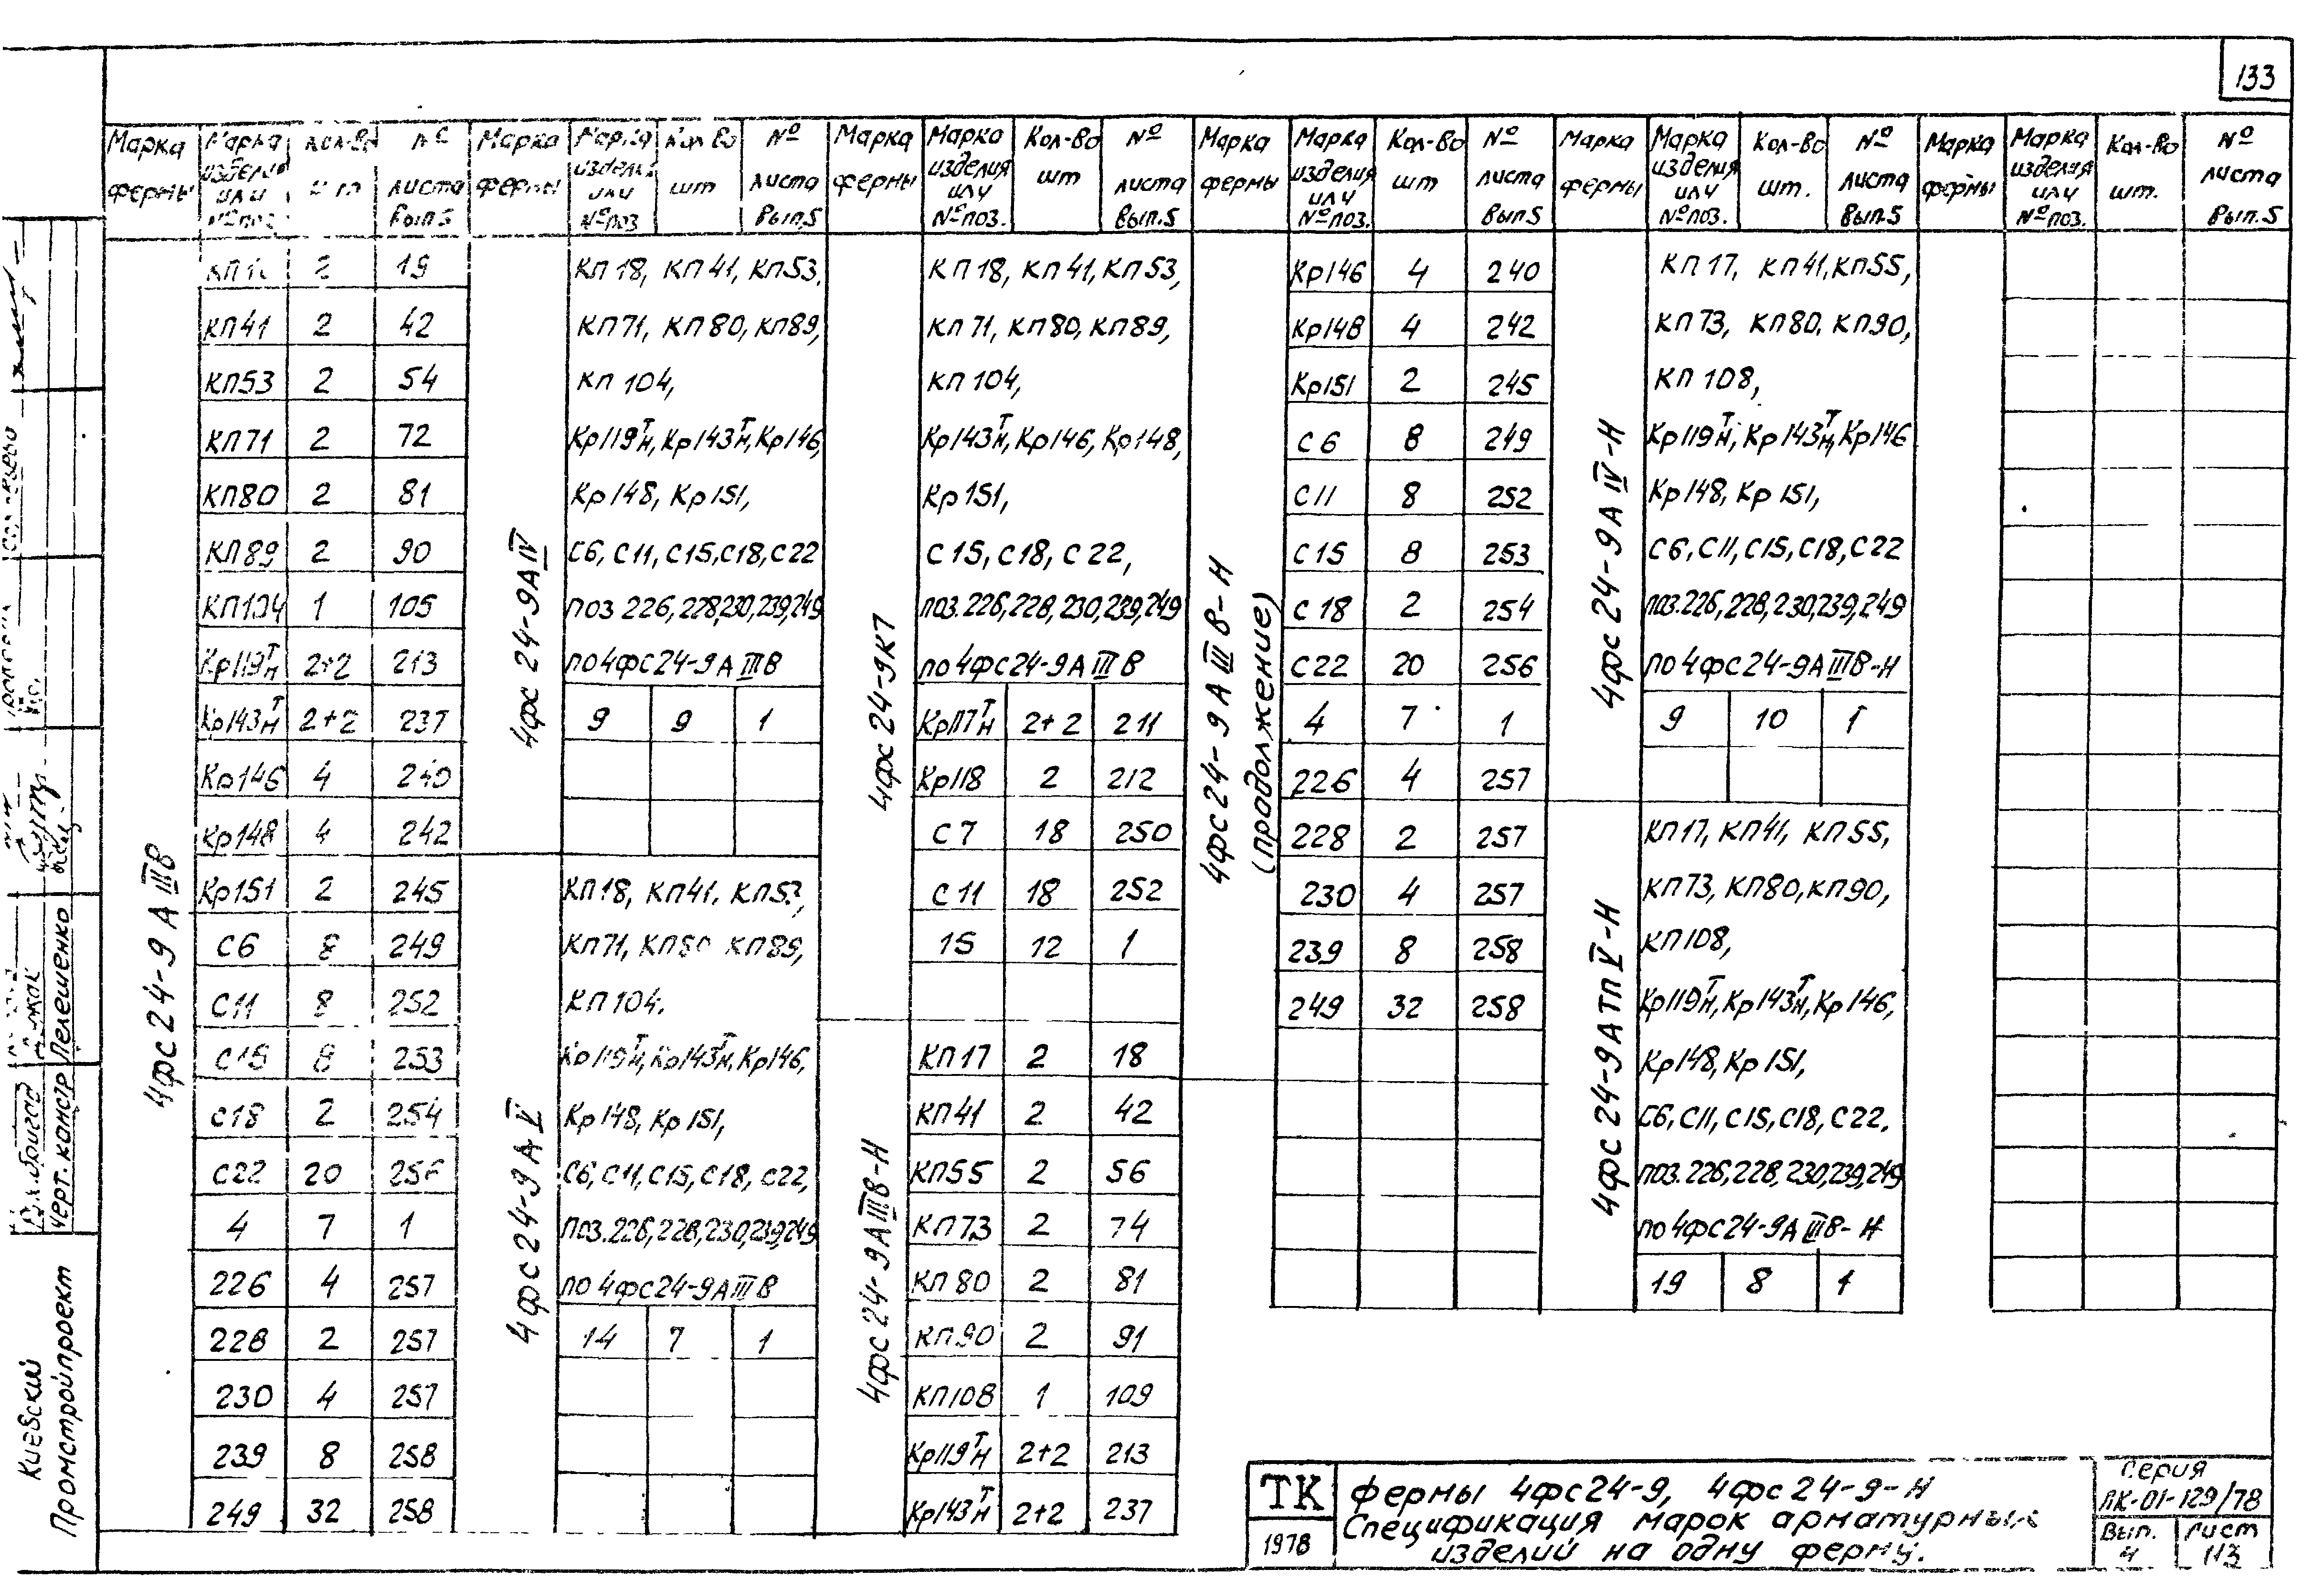 133
Марка фермы | Марка изделия или № поз. | Кол-во шт | № листа вып.5
Марка фермы | Марка изделия или № поз | Кол-во шт | № листа вып.5
Марка фермы | Марка изделия или № поз. | Кол-во шт | № листа вып.5
Марка фермы | Марка изделия или № поз. | Кол-во шт | № листа вып5
Марка фермы | Марка изделия или № поз. | Кол-во шт. | № листа вып.5
Марка фермы | Марка изделия или № поз. | Кол-во шт. | № листа вып.5
4фс24-9 А III В
2 19
КП41 2 42
КП53 2 54
КП71 2 72
КП80 2 81
КП89 2 90
КП104 1 105
Кр119 Т/Н 2+2 213
Кр143 Т/Н 2+2 237
Кр146 4 240
Кр148 4 242
Кр151 2 245
С6 8 249
С11 8 252
С15 8 253
С18 2 254
С22 20 256
4 7 1
226 4 257
228 2 257
230 4 257
239 8 258
249 32 258
4фс 24-9А IV
КП 18, КП 41, КП53,
КП71, КП80, КП89,
КП 104,
Кр119 Т/Н, Кр143 Т/Н, Кр146,
Кр148, Кр151,
С6, С11, С15, С18, С22
поз 226, 228, 230, 239, 249
по 4фс24-9 А III В
9 9 1
4фс24-9 А V
КП18, КП41, КП53,
КП71, КП80 КП89,
КП 104.
Кр119 Т/Н, Кр143 Т/Н, Кр146,
Кр148, Кр151,
С6, С11, С15, С18, С22,
поз. 226, 228, 230, 239, 249
по 4фс24-9А III В
14 7 1
4фс 24-9К7
КП 18, КП 41, КП 53,
КП 71, КП80, КП89,
КП 104,
Кр143 Т/Н, Кр146, Кр148,
Кр151,
С 15, С18, С 22,
поз. 226, 228, 230, 239, 249
по 4фс24-9А III В
Кр117 Т/Н 2+2 211
Кр118 2 212
С 7 18 250
С 11 18 252
15 12 1
4фс 24-9А III В-Н
КП17 2 18
КП41 2 42
КП55 2 56
КП73 2 74
КП 80 2 81
КП90 2 91
КП108 1 109
Кр119 Т/Н 2+2 213
Кр143 Т/Н 2+2 237
4фс 24-9 А III В-Н
(продолжение)
Кр146 4 240
Кр148 4 242
Кр151 2 245
С 6 8 249
С 11 8 252
С 15 8 253
С 18 2 254
С22 20 256
4 7 1
226 4 257
228 2 257
230 4 257
239 8 258
249 32 258
4фс 24-9 А IV-Н
КП 17, КП 41, КП55,
КП 73, КП80, КП90,
КП 108,
Кр119 Т/Н, Кр143 Т/Н, Кр146
Кр148, Кр151,
С6, С11, С15, С18, С22
поз. 226, 228, 230, 239, 249
по 4фс24-9А III В-Н
9 10 1
4фс 24-9 АТП V-Н
КП17, КП41, КП55,
КП73, КП80, КП90,
КП108,
Кр119 Т/Н, Кр143 Т/Н, Кр146,
Кр148, Кр151,
С6, С11, С15, С18, С22,
поз. 226, 228, 230, 239, 249
по 4фс24-9А III В-Н
19 8 1
Киевский
Промстройпроект
Черт. констр Пелешенко
ТК
1978
фермы 4фс24-9, 4фс24-9-Н
Спецификация марок арматурных
изделий на одну ферму.
Серия
ПК-01-129/78
Вып. 4
Лист 113